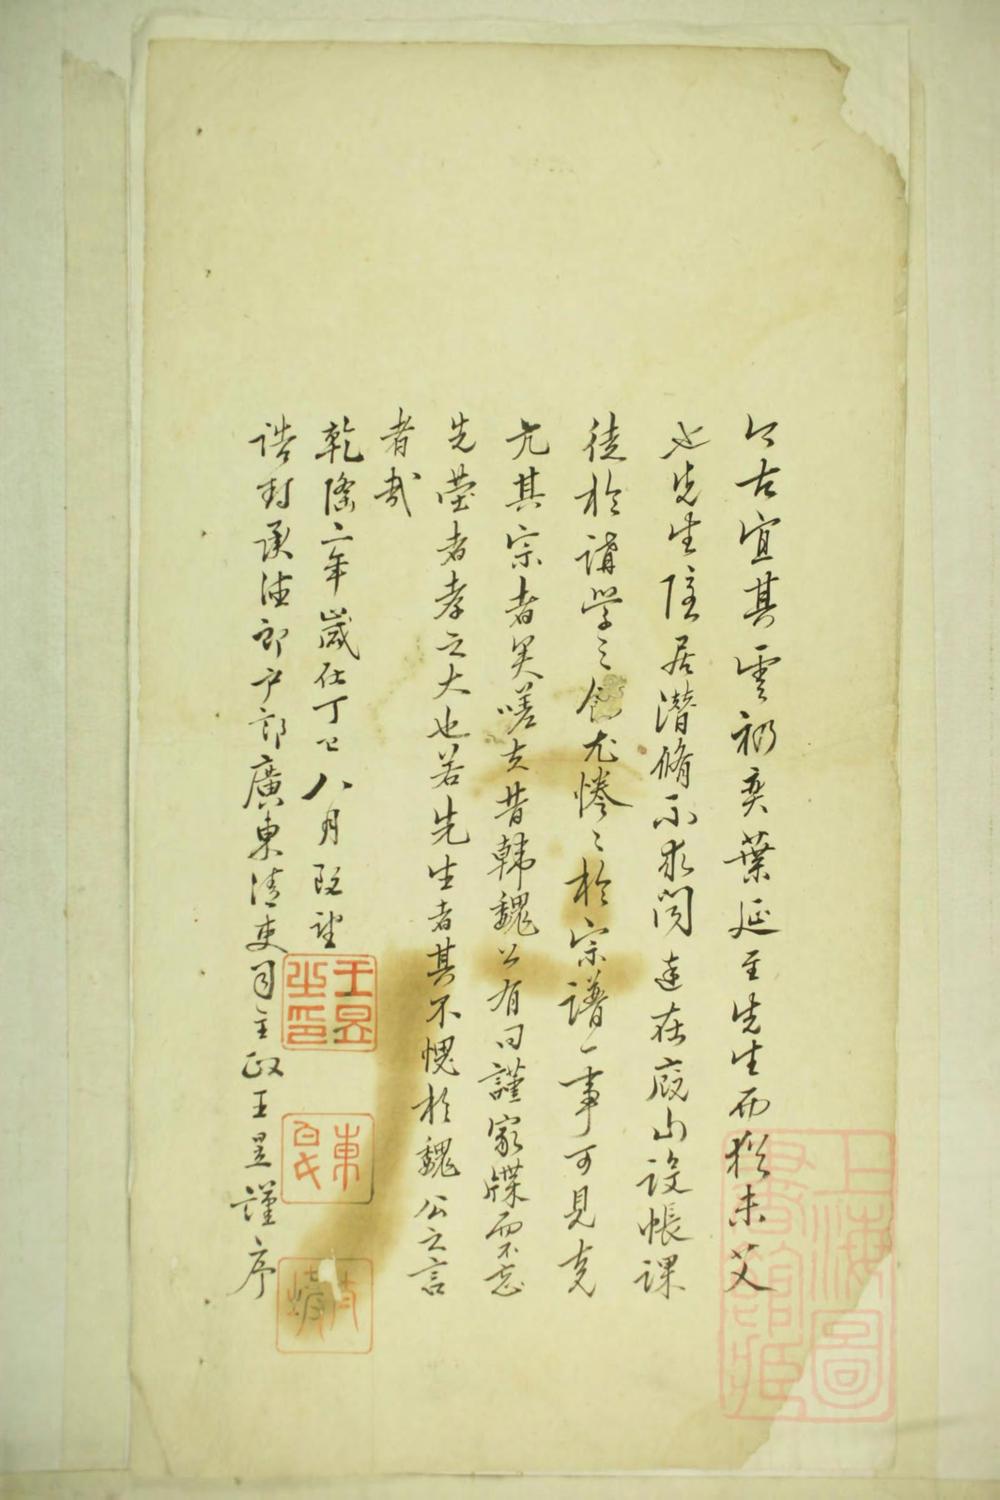 公古宜其雲礽奕葉延至先生而猶未艾
也先生隱居潛脩不求聞達在廄山設帳課
徒於講學之餘尤惓〻於宗譜一事可見克
亢其宗者矣嗟夫昔韓魏公有曰謹家牒而不忘
先塋者孝之大也若先生者其不愧於魏公之言
者哉
乾隆二年歲在丁巳八月既望
誥封承德郎户部廣東清吏司主政王昱謹序
王昱之印
東
上海圖書館藏